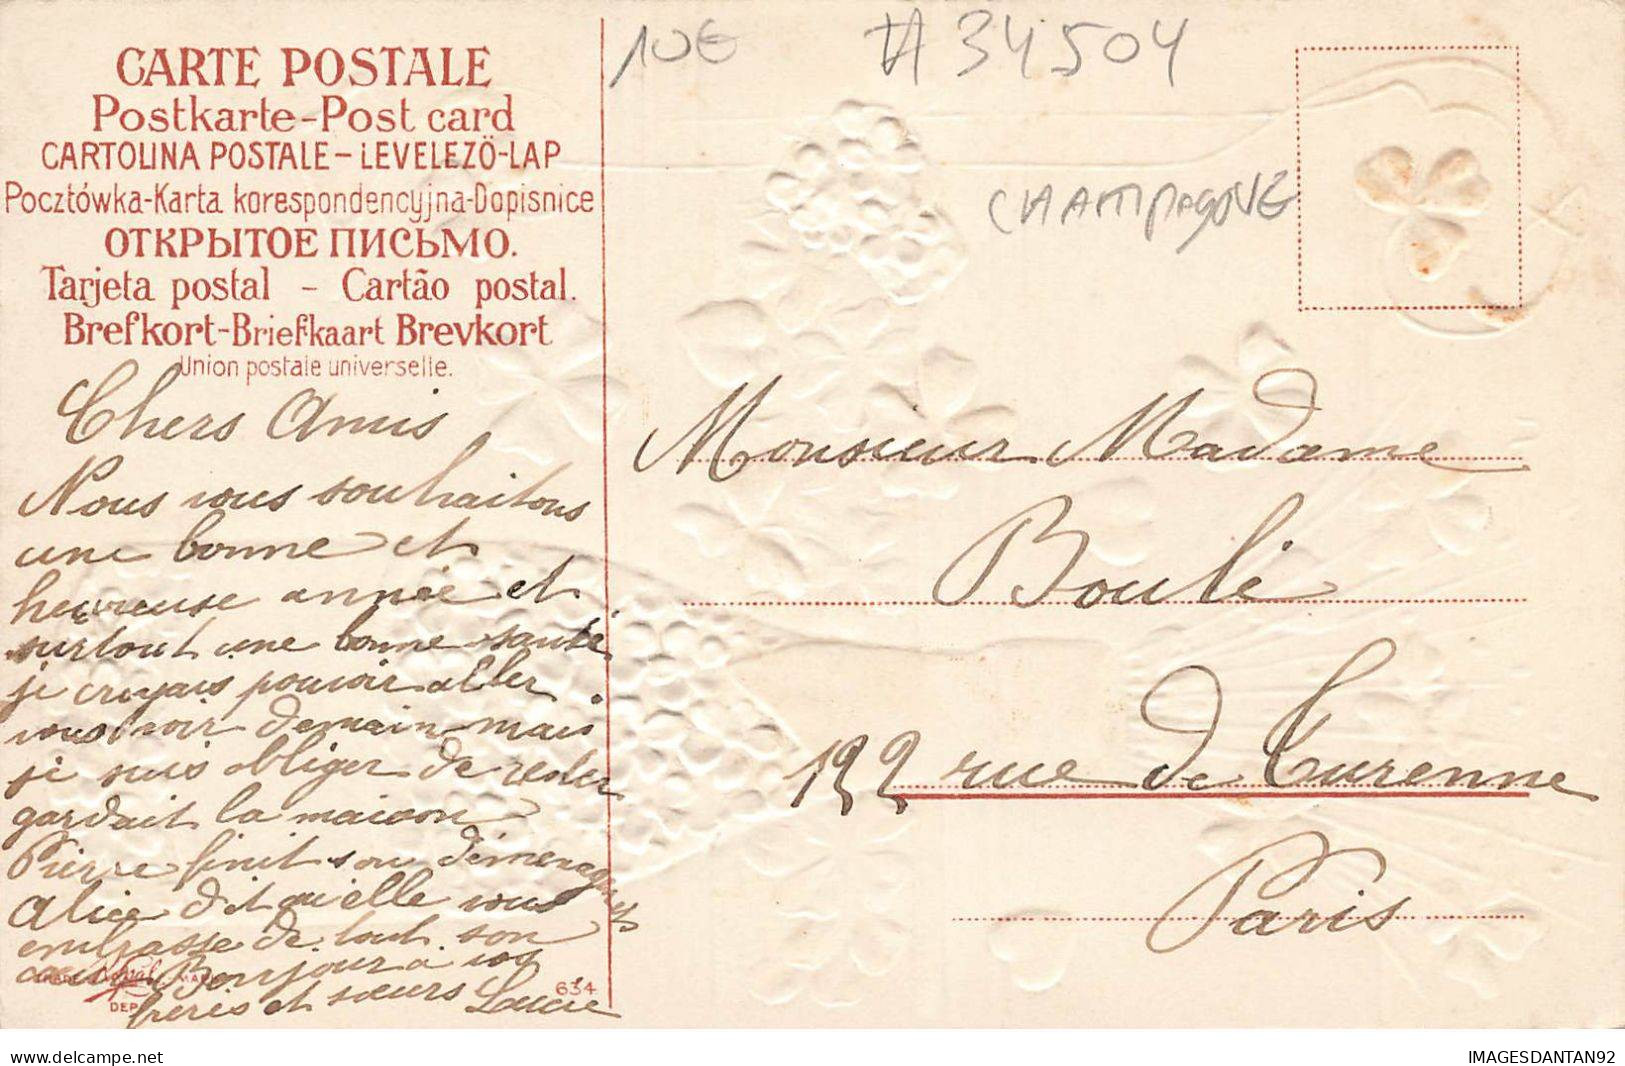 CARTE POSTALE
Postkarte-Post card
CARTOLINA POSTALE-LEVELEZÖ-LAP
Pocztówka-Karta korespondencyjna-Dopisnice
ОТКРЫТОЕ ПИСЬМО.
Tarjeta postal - Cartão postal.
Brefkort-Briefkaart Brevkort
Union postale universelle.
Chers Amis
Nous vous souhaitons
une bonne et
heureuse année et
surtout une bonne santé
je croyais pouvoir aller
vous voir demain mais
je suis obliger de rester
gardait la maison
Pierre finit son
Alice dit qu'elle vous
embrasse de tout son
Bonjour à vos
frères et sœurs Lucie
DEP
634
10€
#34504
CHAMPAGNE
Monsieur Madame
Boulé
122 rue de Turenne
Paris
delcampe.net
IMAGESDANTAN92